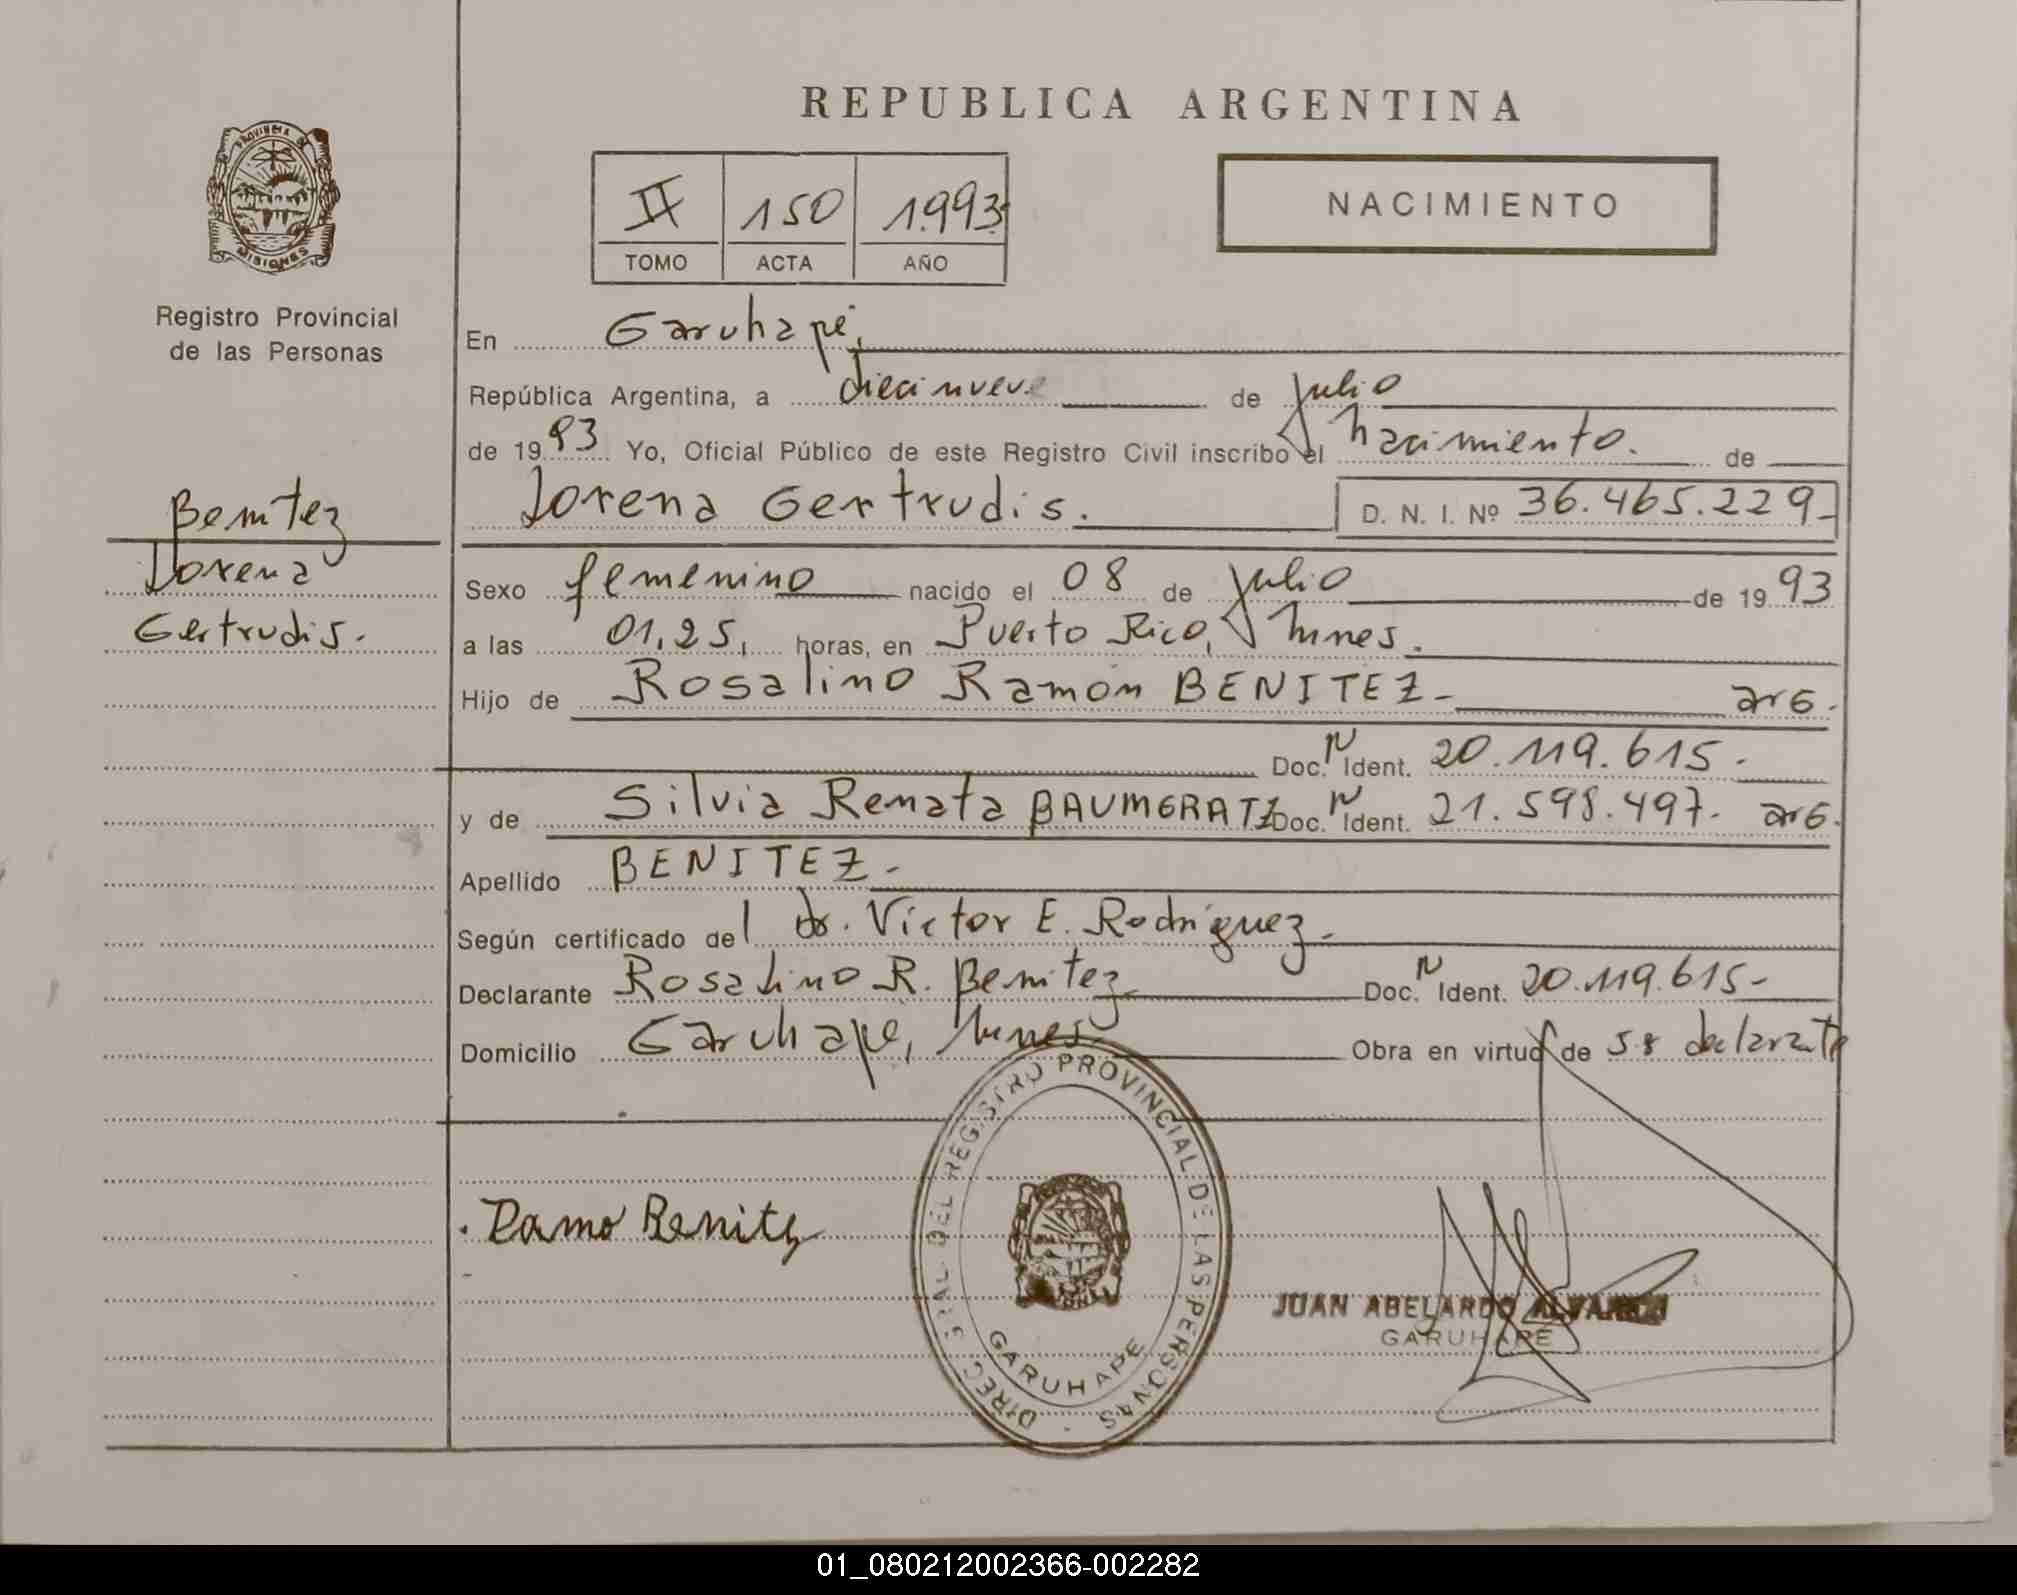 REPUBLICA ARGENTINA
PROVINCIA DE
MISIONES
II 150 1.993
TOMO ACTA AÑO
NACIMIENTO
Registro Provincial
de las Personas
Benitez
Lorena
Gertrudis.
En Garuhapé,
República Argentina, a diecinueve de Julio
de 1993 Yo, Oficial Público de este Registro Civil inscribo el nacimiento. de
Lorena Gertrudis. D. N. I. Nº 36.465.229-
Sexo femenino nacido el 08 de Julio de 1993
a las 01,25, horas, en Puerto Rico, Mnes.
Hijo de Rosalino Ramón BENITEZ- arg.
Doc. N Ident. 20.119.615.-
y de Silvia Renata BAUMGRATZ Doc. N Ident. 21.598.497. arg.
Apellido BENITEZ.-
Según certificado del dr. Victor E. Rodriguez.-
Declarante Rosalino R. Benitez Doc. N Ident. 20.119.615-
Domicilio Garuhape, Mnes. Obra en virtud de ser declarante
DIREC. GRAL. DEL REGISTRO PROVINCIAL DE LAS PERSONAS
GARUHAPE
Benitz
JUAN ABELARDO
GARUHAPE
01_080212002366-002282